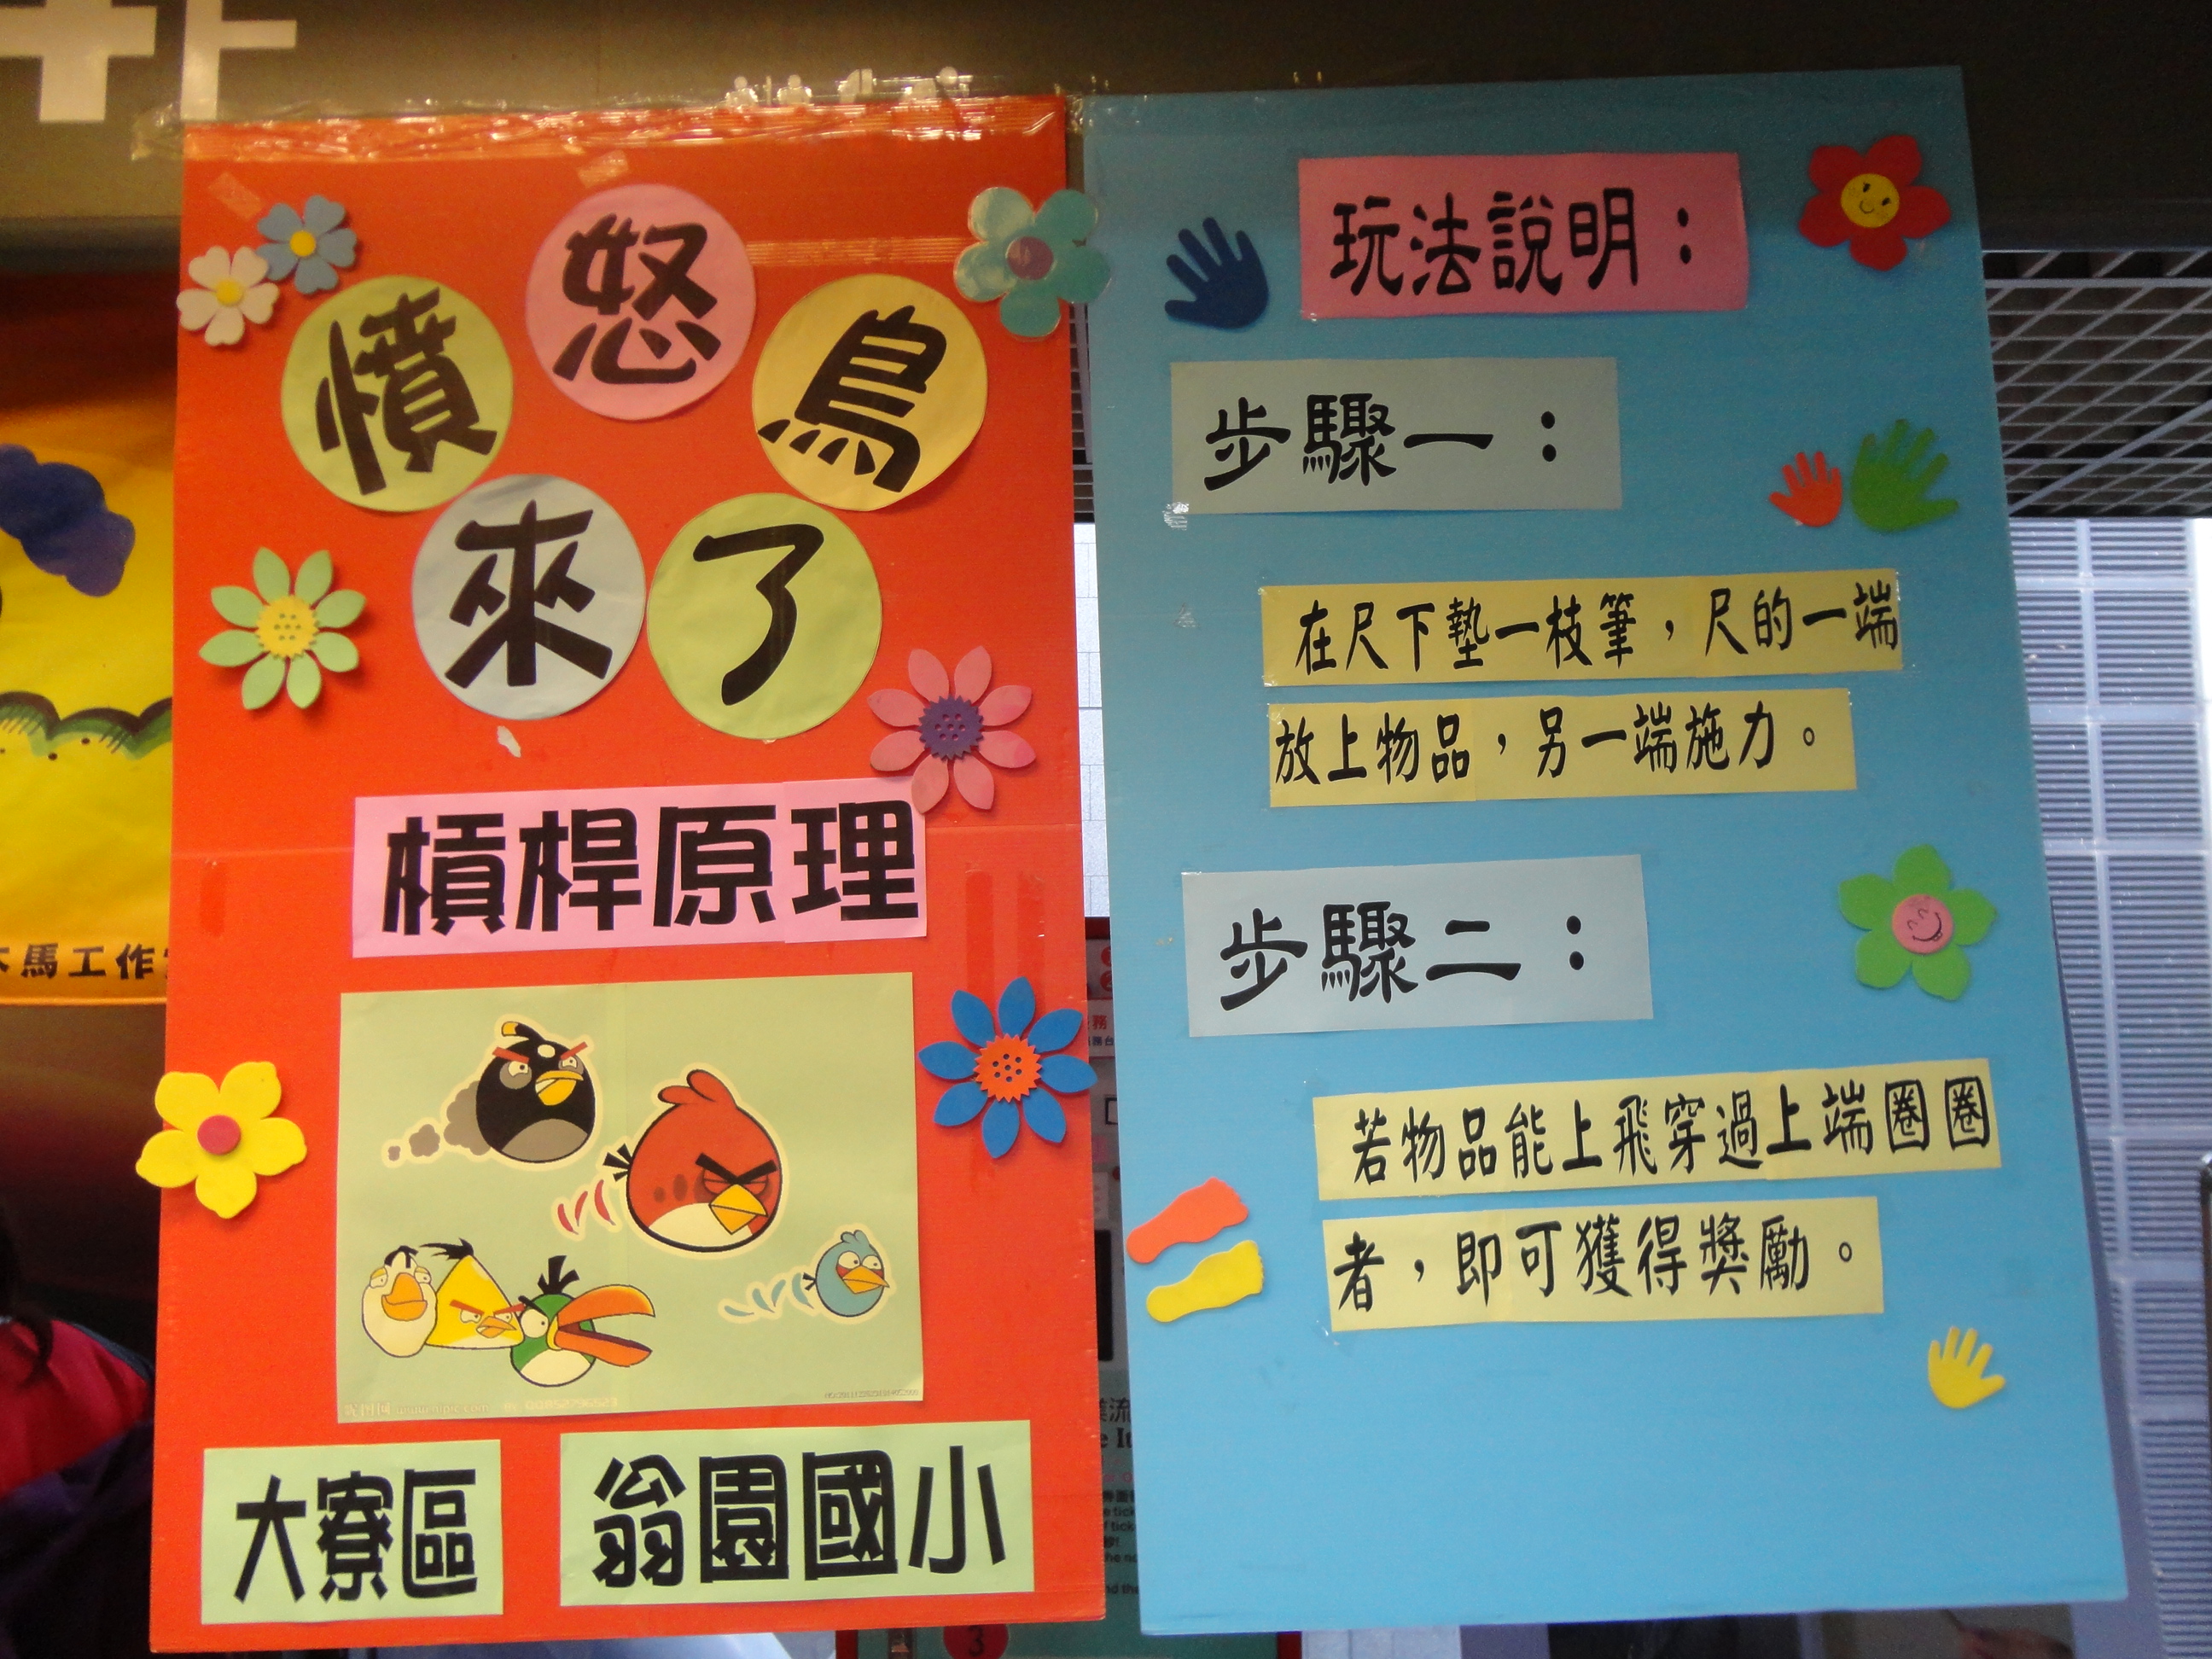 憤怒鳥
來了
槓桿原理
大寮區 翁園國小
玩法說明：
步驟一：
在尺下墊一枝筆，尺的一端
放上物品，另一端施力。
步驟二：
若物品能上飛穿過上端圈圈
者，即可獲得獎勵。
馬工作